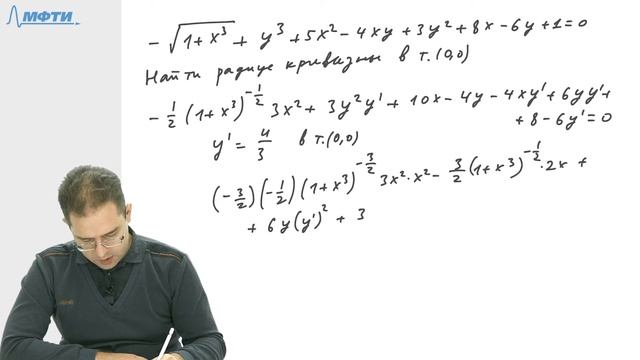 МФТИ
- √(1+x³) + y³ + 5x² - 4xy + 3y² + 8x - 6y + 1 = 0
Найти радиус кривизны в т.(0,0)
- 1/2 (1+x³)^(-1/2) 3x² + 3y²y' + 10x - 4y - 4xy' + 6yy' +
+ 8 - 6y' = 0
y' = 4/3 в т.(0,0)
(-3/2)(-1/2)(1+x³)^(-3/2) 3x²·x² - 3/2 (1+x³)^(-1/2)·2x +
+ 6y(y')² + 3